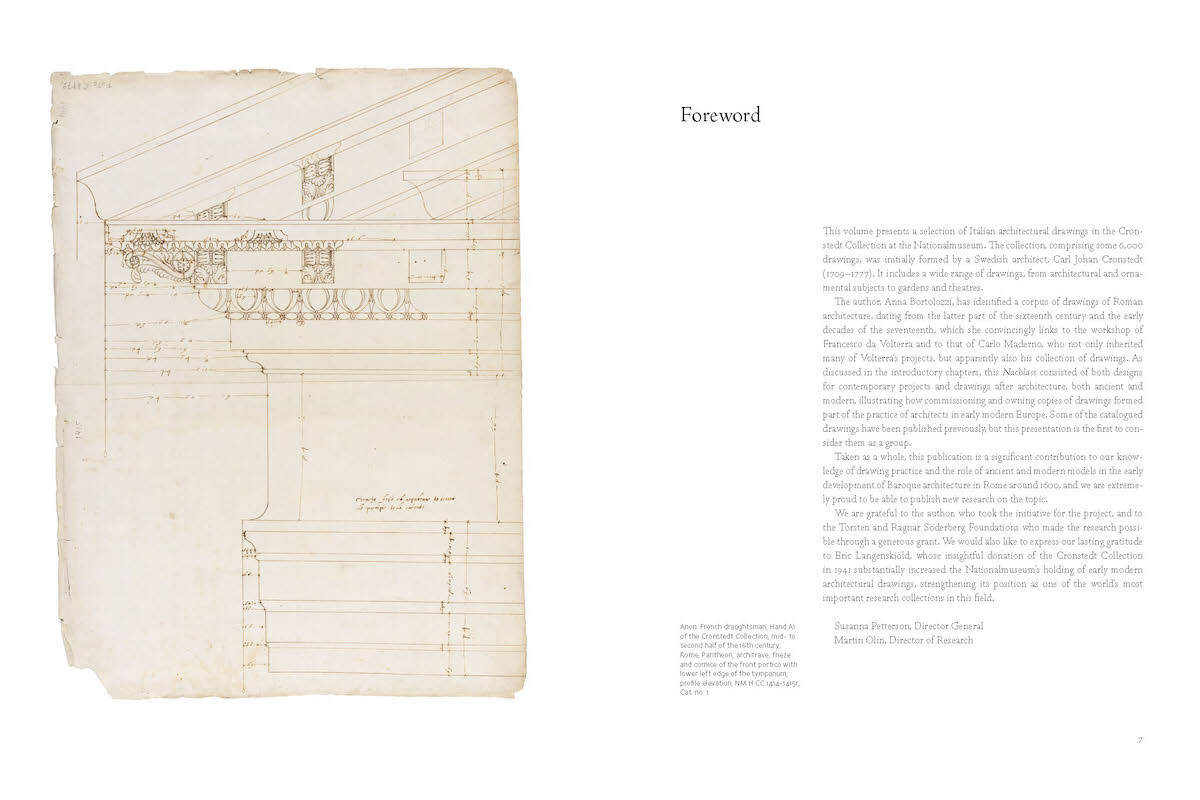 1415
Foreword
This volume presents a selection of Italian architectural drawings in the Cron-
stedt Collection at the Nationalmuseum. The collection, comprising some 6,000
drawings, was initially formed by a Swedish architect, Carl Johan Cronstedt
(1709–1777). It includes a wide range of drawings, from architectural and orna-
mental subjects to gardens and theatres.
The author, Anna Bortolozzi, has identified a corpus of drawings of Roman
architecture, dating from the latter part of the sixteenth century and the early
decades of the seventeenth, which she convincingly links to the workshop of
Francesco da Volterra and to that of Carlo Maderno, who not only inherited
many of Volterra's projects, but apparently also his collection of drawings. As
discussed in the introductory chapters, this Nachlass consisted of both designs
for contemporary projects and drawings after architecture, both ancient and
modern, illustrating how commissioning and owning copies of drawings formed
part of the practice of architects in early modern Europe. Some of the catalogued
drawings have been published previously, but this presentation is the first to con-
sider them as a group.
Taken as a whole, this publication is a significant contribution to our know-
ledge of drawing practice and the role of ancient and modern models in the early
development of Baroque architecture in Rome around 1600, and we are extreme-
ly proud to be able to publish new research on the topic.
We are grateful to the author, who took the initiative for the project, and to
the Torsten and Ragnar Söderberg Foundations who made the research possi-
ble through a generous grant. We would also like to express our lasting gratitude
to Eric Langenskiöld, whose insightful donation of the Cronstedt Collection
in 1941 substantially increased the Nationalmuseum's holding of early modern
architectural drawings, strengthening its position as one of the world's most
important research collections in this field.
Susanna Petterson, Director General
Martin Olin, Director of Research
Anon. French draughtsman, Hand A1
of the Cronstedt Collection, mid- to
second half of the 16th century,
Rome, Pantheon, architrave, frieze
and cornice of the front portico with
lower left edge of the tympanum,
profile elevation, NM H CC 1414-1415r,
Cat. no. 1
7